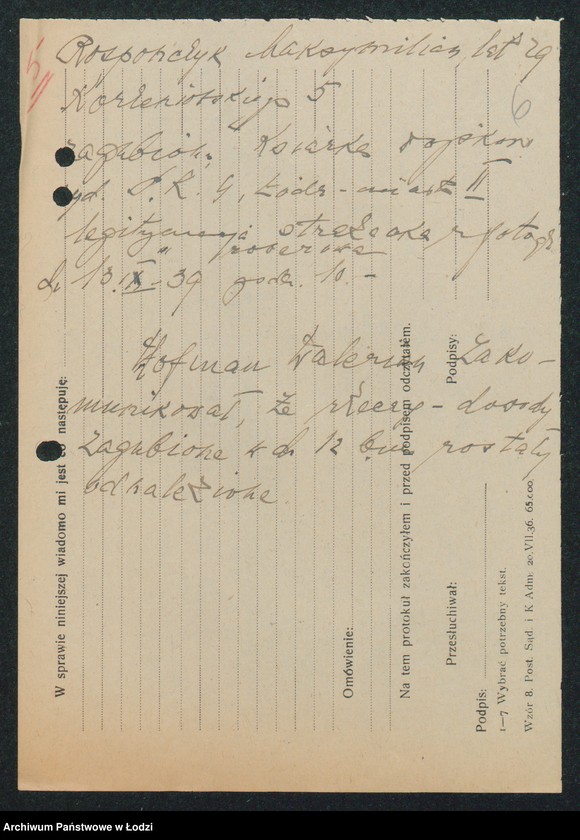 5
6
Rospończyk Maksymilian, lat 29
Korzeniowskiego 5
zagubion. Książka wojskow
wyd. P.K.U, Łódź-miasto II
legitymacja strzelecka z fotogr
" rowerowa
d. 13.IX-39 godz. 10.-
Hofman Walerian Zako-
munikował, że rzeczy-dowody
zagubione w dn. 12 b.m zostały
odnalezione.
W sprawie niniejszej wiadomo mi jest co następuje:
Omówienie:
Na tem protokuł zakończyłem i przed podpisem odczytałem.
Przesłuchiwał:
Podpisy:
Podpis:
1—7 Wybrać potrzebny tekst.
Wzór 8. Post. Sąd. i K Adm. 20.VII.36. 65.000.
Archiwum Państwowe w Łodzi